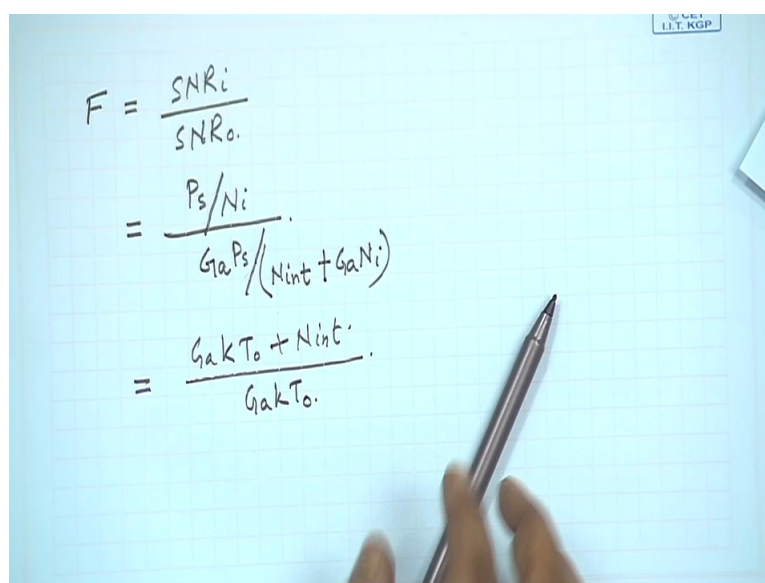 © CET
I.I.T. KGP
F = SNRi / SNRo.
= Ps/Ni / GaPs/(Nint + GaNi).
= GakTo + Nint. / GakTo.